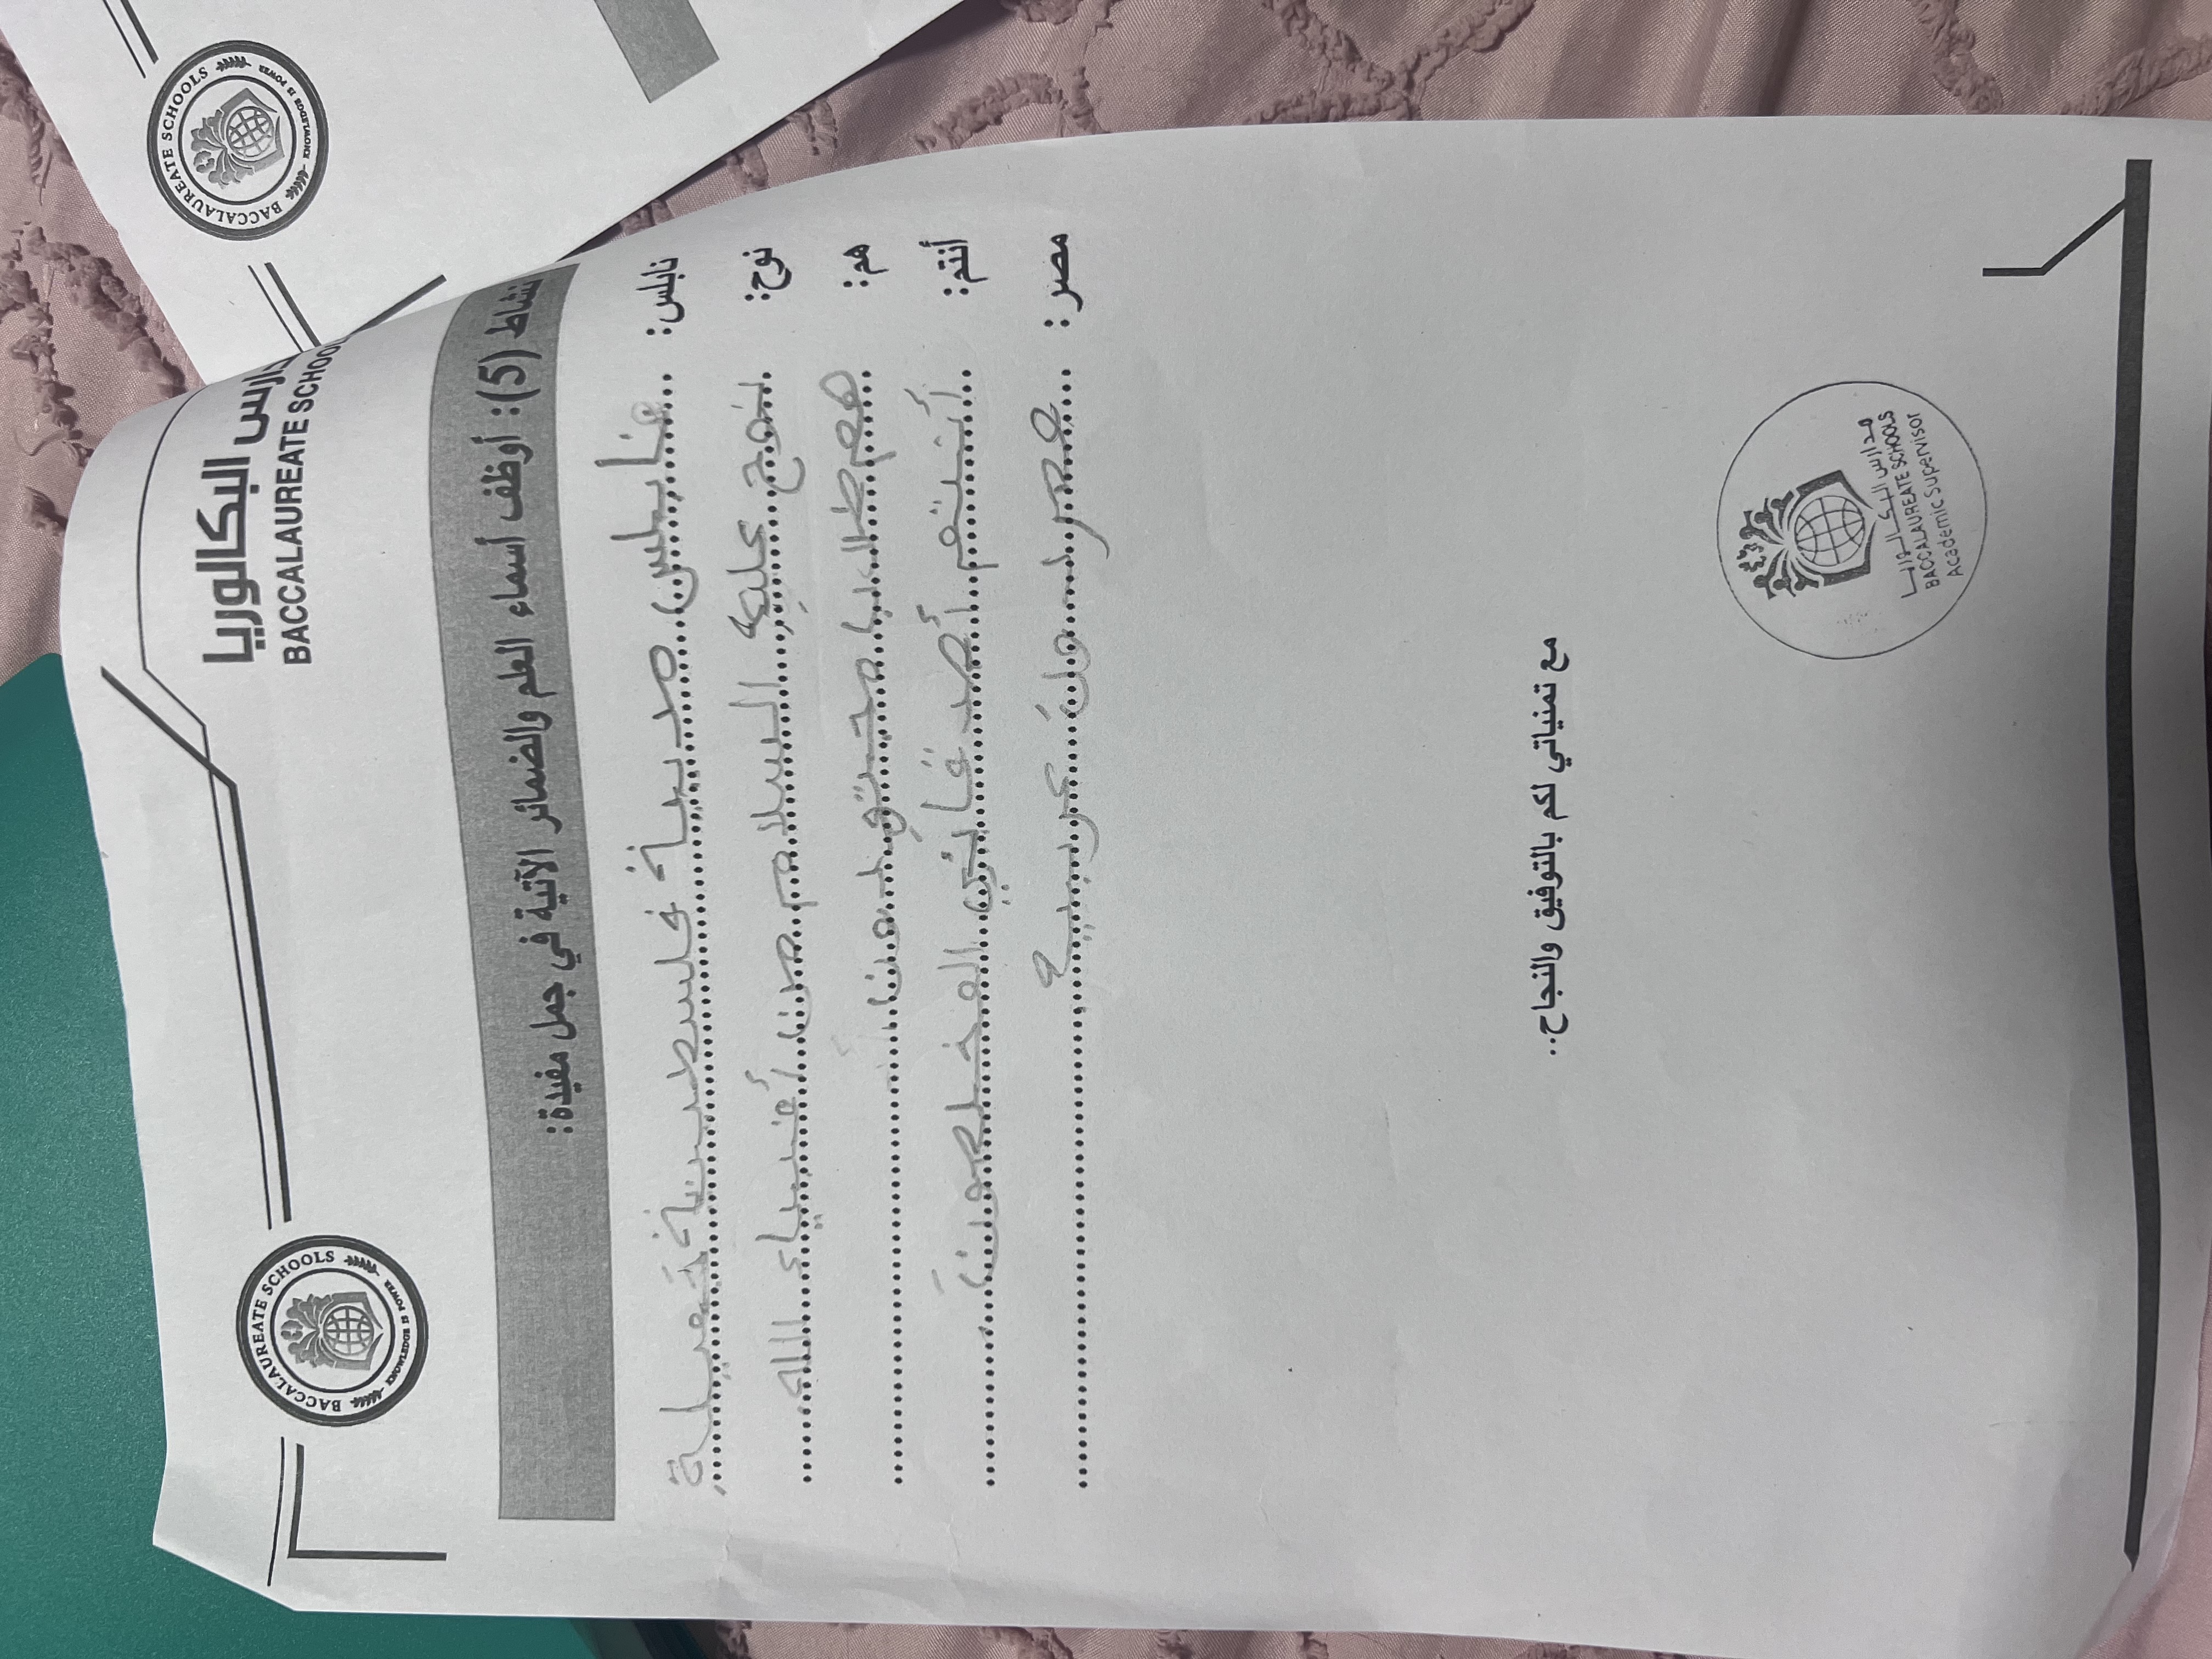 BACCALAUREATE SCHOOLS
KNOWLEDGE IS POWER
مدارس البكالوريا
BACCALAUREATE SCHOOLS
BACCALAUREATE SCHOOLS
KNOWLEDGE IS POWER
نشاط (5): أوظف أسماء العلم والضمائر الآتية في جمل مفيدة:
نابلس: نابلس مدينة فلسطينية جميلة
نوح: نوح عليه السلام من أنبياء الله
هم: هم طلاب
أنتم: أنتم أصدقائي المخلصون
مصر: مصر عربية
مع تمنياتي لكم بالتوفيق والنجاح..
مدارس البكالوريا
BACCALAUREATE SCHOOLS
Academic Supervisor